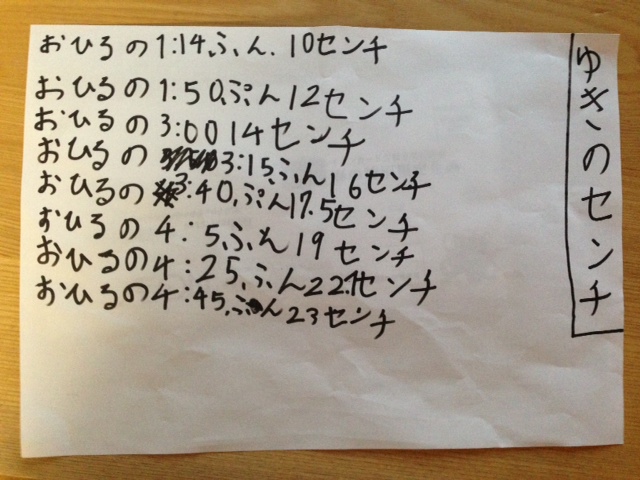 ゆきのセンチ
おひるの1:14ふん. 10センチ
おひるの1:50ぷん12センチ
おひるの3:00 14センチ
おひるの3:15ふん16センチ
おひるの3:40ぷん17.5センチ
おひるの4:5ふん19センチ
おひるの4:25ふん22.1センチ
おひるの4:45ぷん23センチ